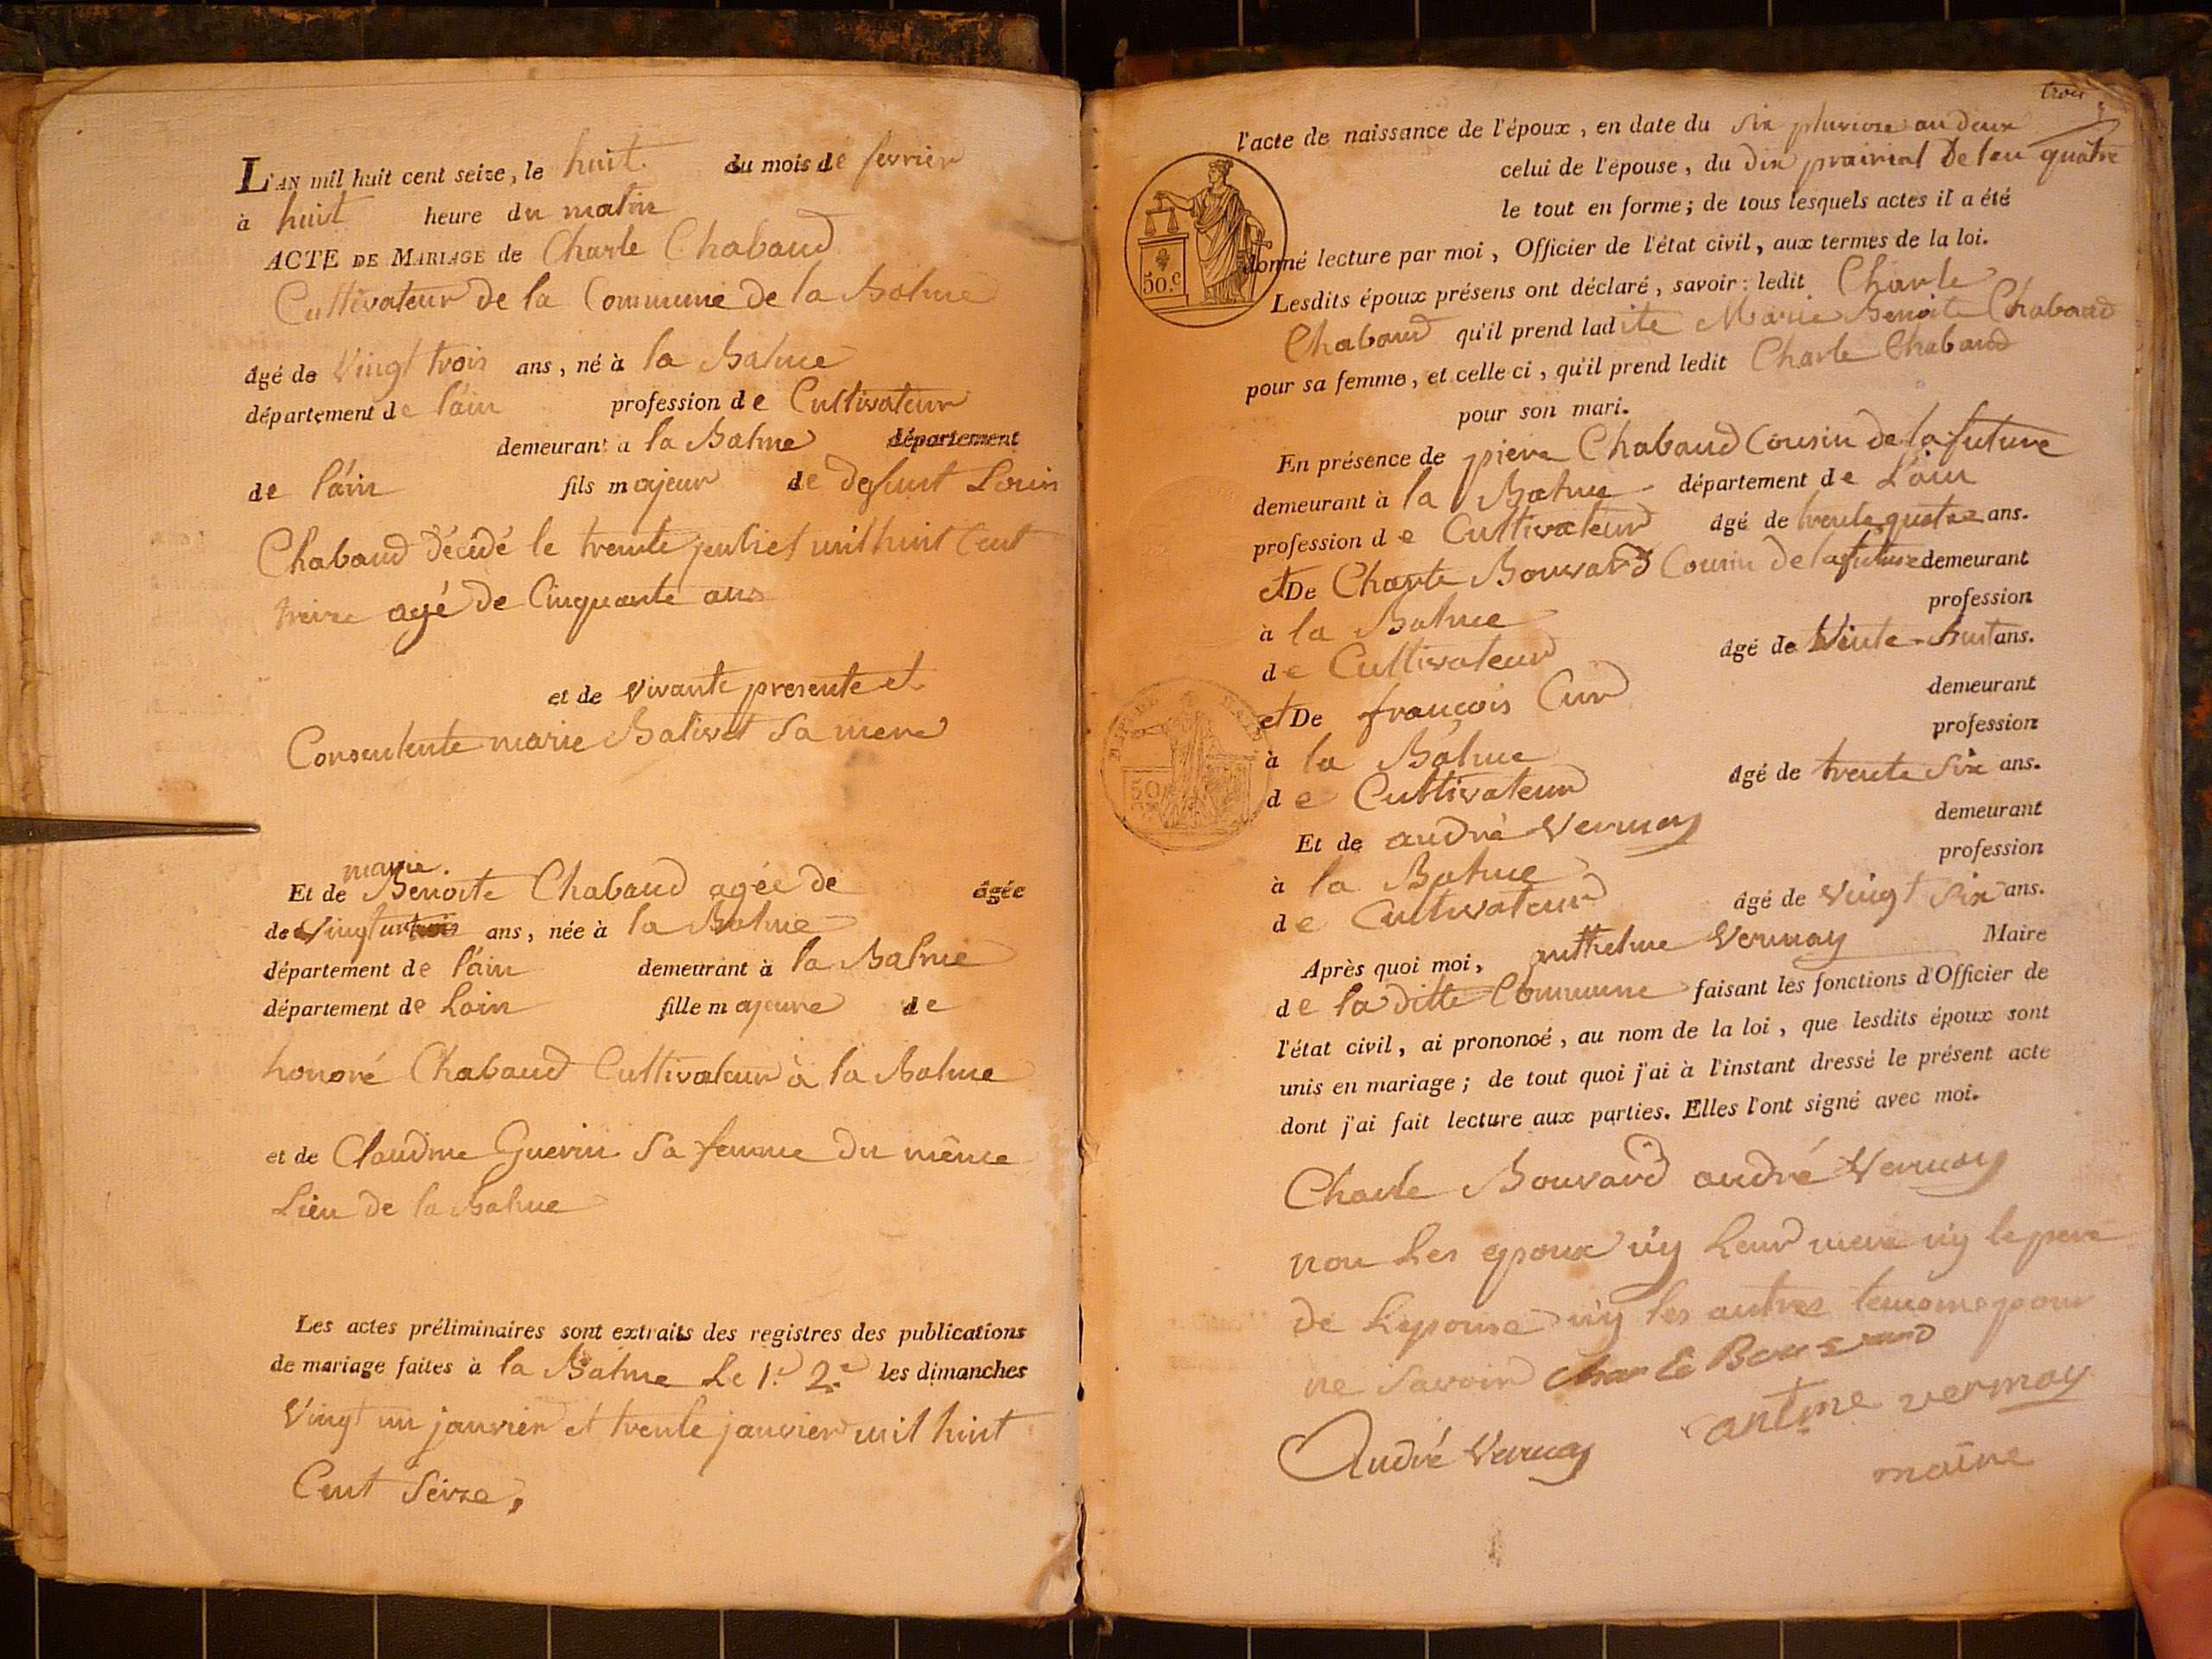 L'AN mil huit cent seize, le huit du mois de fevrier
à huit heure du matin
ACTE DE MARIAGE de Charle Chabaud
Cultivateur de la Commune de la Balme
âgé de Vingt trois ans, né à la Balme
département de l'ain profession de Cultivateur
demeurant a la Balme département
de l'ain fils majeur de defunt
Chabaud décédé le trente juillet mil huit Cent
treize agé de Cinquante ans
et de vivante presente et
Consentente marie Balivet Sa mere
marie
Et de Benoite Chabaud agée de âgée
de Vingt ans, née à la Balme
département de l'ain demeurant à la Balme
département de Lain fille majeure de
honoré Chabaud Cultivateur à la Balme
et de Claudine Guerin Sa femme du même
Lieu de la Balme
Les actes préliminaires sont extraits des registres des publications
de mariage faites à la Balme Le 1.e 2.e les dimanches
Vingt un janvier et trente janvier mil huit
Cent Seize,
trois
l'acte de naissance de l'époux, en date du six pluviose an deux
celui de l'épouse, du dix prairial de lan quatre
le tout en forme; de tous lesquels actes il a été
donné lecture par moi, Officier de l'état civil, aux termes de la loi.
50.c
Lesdits époux présens ont déclaré, savoir: ledit Charle
Chabaud qu'il prend ladite Marie Benoite Chabaud
pour sa femme, et celle ci, qu'il prend ledit Charle Chabaud
pour son mari.
En présence de pierre Chabaud Cousin de la future
demeurant à la Balme département de L'ain
profession de Cultivateur âgé de trente quatre ans.
et De Charle Bouvard Cousin de la future demeurant
à la Balme profession
de Cultivateur âgé de trente-huit ans.
et De françois Cur demeurant
à la Balme profession
de Cultivateur âgé de trente Six ans.
50
Et de andré Vernay demeurant
à la Balme profession
de Cultivateur âgé de Vingt Six ans.
Après quoi moi, anthelme Vernay Maire
de la ditte Commune faisant les fonctions d'Officier de
l'état civil, ai prononcé, au nom de la loi, que lesdits époux sont
unis en mariage; de tout quoi j'ai à l'instant dressé le présent acte
dont j'ai fait lecture aux parties. Elles l'ont signé avec moi.
Charle Bouvard andré Vernay
non Les epoux n'y Leur mere n'y le pere
de Lepouse n'y les autres temoins pour
ne Savoir Charle Bouvard
André Vernay antme vernay
maire